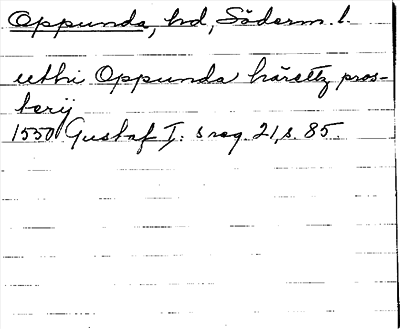 Oppunda, hd, Söderm. l.
uthi Oppunda härettz pros-
berij
1550 Gustaf I:s reg. 21, s. 85.